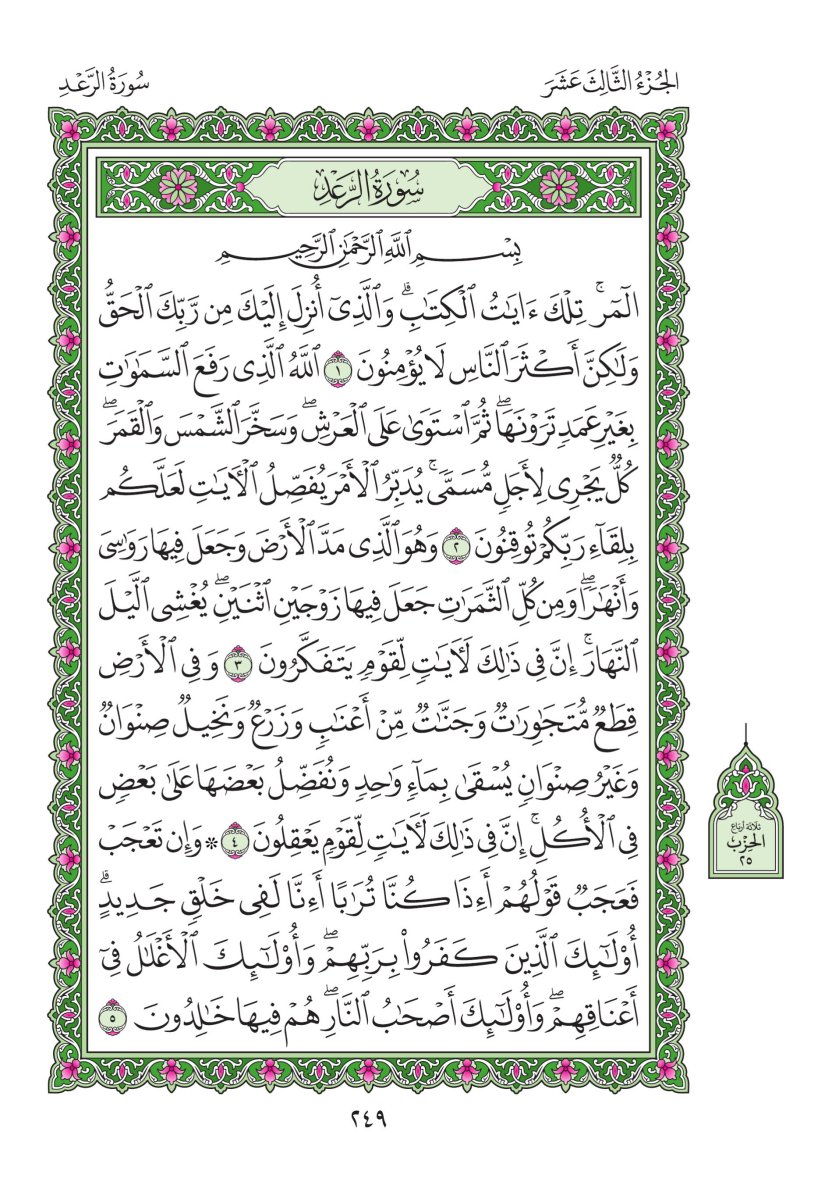 الجُزْءُ الثَّالِثَ عَشَرَ
سُورَةُ الرَّعْدِ
سُورَةُ الرَّعْدِ
بِسْمِ ٱللَّهِ ٱلرَّحْمَٰنِ ٱلرَّحِيمِ
الٓمٓرۚ تِلْكَ ءَايَٰتُ ٱلْكِتَٰبِۗ وَٱلَّذِىٓ أُنزِلَ إِلَيْكَ مِن رَّبِّكَ ٱلْحَقُّ
وَلَٰكِنَّ أَكْثَرَ ٱلنَّاسِ لَا يُؤْمِنُونَ ١ ٱللَّهُ ٱلَّذِى رَفَعَ ٱلسَّمَٰوَٰتِ
بِغَيْرِ عَمَدٍ تَرَوْنَهَاۖ ثُمَّ ٱسْتَوَىٰ عَلَى ٱلْعَرْشِۖ وَسَخَّرَ ٱلشَّمْسَ وَٱلْقَمَرَۖ
كُلٌّ يَجْرِى لِأَجَلٍ مُّسَمًّىۚ يُدَبِّرُ ٱلْأَمْرَ يُفَصِّلُ ٱلْءَايَٰتِ لَعَلَّكُم
بِلِقَآءِ رَبِّكُمْ تُوقِنُونَ ٢ وَهُوَ ٱلَّذِى مَدَّ ٱلْأَرْضَ وَجَعَلَ فِيهَا رَوَٰسِىَ
وَأَنْهَٰرًاۖ وَمِن كُلِّ ٱلثَّمَرَٰتِ جَعَلَ فِيهَا زَوْجَيْنِ ٱثْنَيْنِۖ يُغْشِى ٱلَّيْلَ
ٱلنَّهَارَۚ إِنَّ فِى ذَٰلِكَ لَءَايَٰتٍ لِّقَوْمٍ يَتَفَكَّرُونَ ٣ وَفِى ٱلْأَرْضِ
قِطَعٌ مُّتَجَٰوِرَٰتٌ وَجَنَّٰتٌ مِّنْ أَعْنَٰبٍ وَزَرْعٌ وَنَخِيلٌ صِنْوَانٌ
وَغَيْرُ صِنْوَانٍ يُسْقَىٰ بِمَآءٍ وَٰحِدٍ وَنُفَضِّلُ بَعْضَهَا عَلَىٰ بَعْضٍ
فِى ٱلْأُكُلِۚ إِنَّ فِى ذَٰلِكَ لَءَايَٰتٍ لِّقَوْمٍ يَعْقِلُونَ ٤ ۞ وَإِن تَعْجَبْ
فَعَجَبٌ قَوْلُهُمْ أَءِذَا كُنَّا تُرَٰبًا أَءِنَّا لَفِى خَلْقٍ جَدِيدٍۗ
أُو۟لَٰٓئِكَ ٱلَّذِينَ كَفَرُوا۟ بِرَبِّهِمْۖ وَأُو۟لَٰٓئِكَ ٱلْأَغْلَٰلُ فِىٓ
أَعْنَاقِهِمْۖ وَأُو۟لَٰٓئِكَ أَصْحَٰبُ ٱلنَّارِۖ هُمْ فِيهَا خَٰلِدُونَ ٥
ثلاثة أرباع
الحِزْب
٢٥
٢٤٩